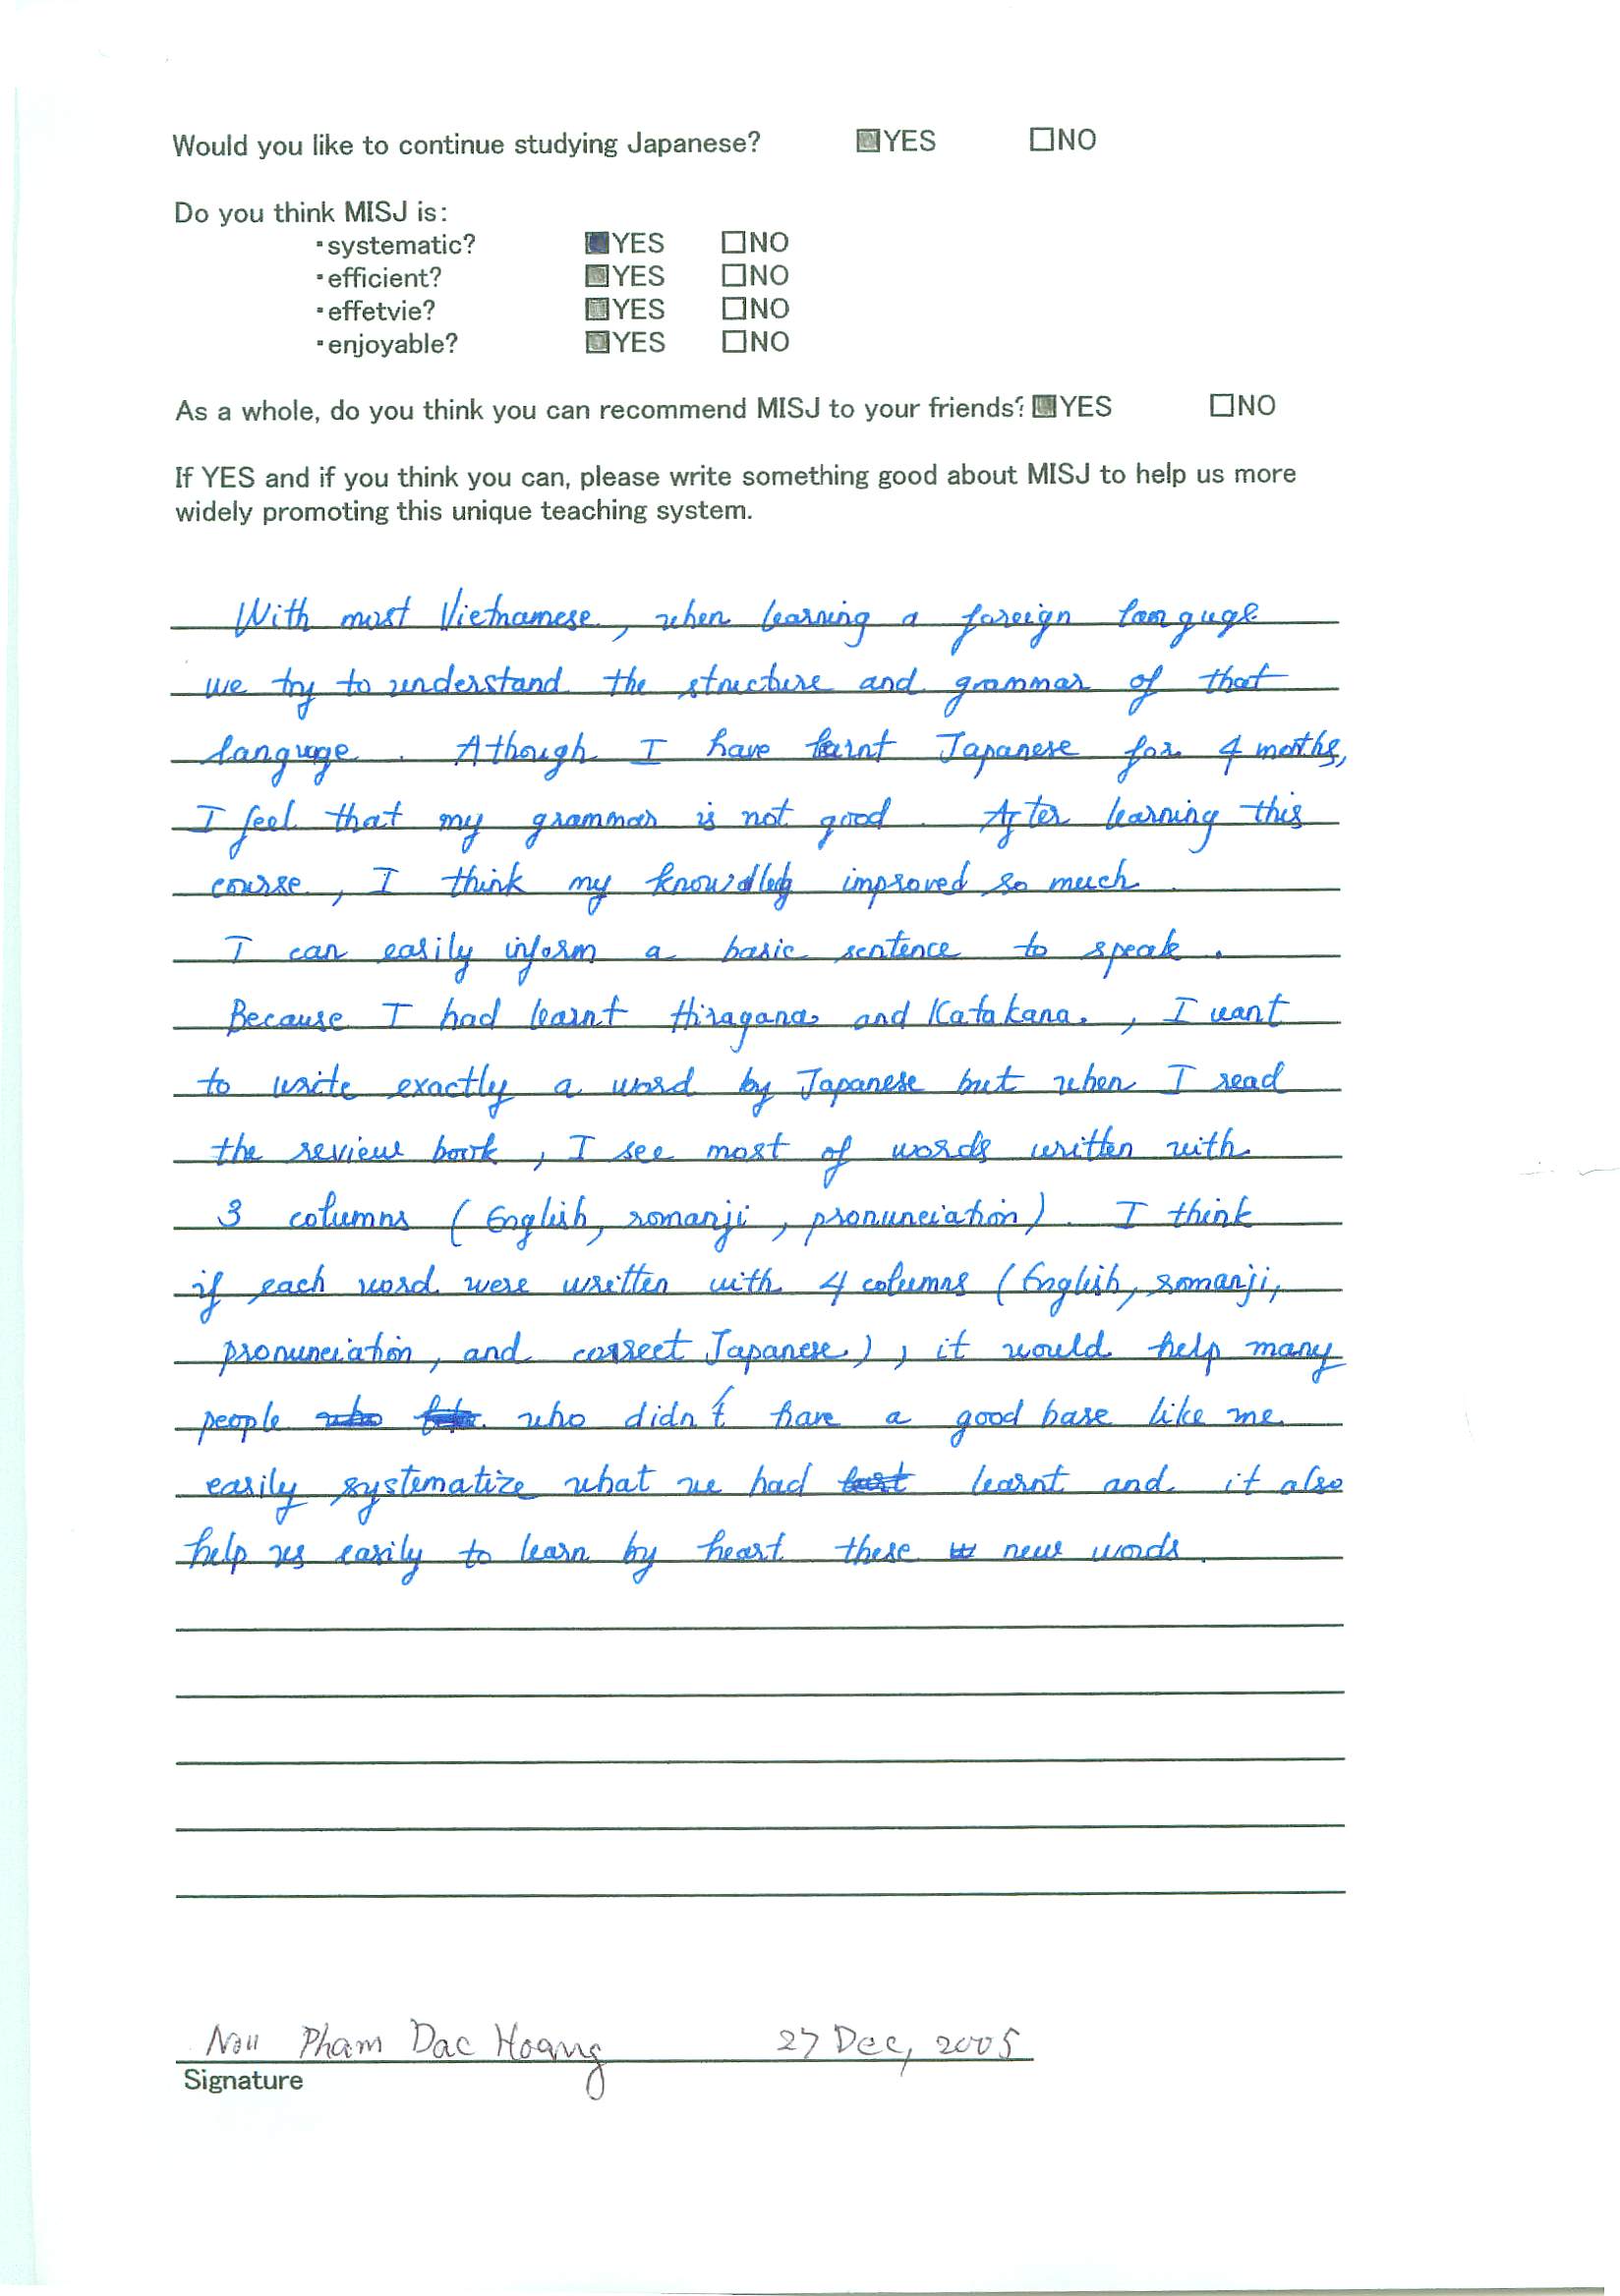 Would you like to continue studying Japanese? ■YES □NO
Do you think MISJ is:
・systematic? ■YES □NO
・efficient? ■YES □NO
・effetvie? ■YES □NO
・enjoyable? ■YES □NO
As a whole, do you think you can recommend MISJ to your friends? ■YES □NO
If YES and if you think you can, please write something good about MISJ to help us more
widely promoting this unique teaching system.
With most Vietnamese, when learning a foreign languge
we try to understand the structure and grammar of that
languge. Athough I have larnt Japanese for 4 moths,
I feel that my grammar is not good. After learning this
course, I think my knowdledg improved so much.
I can easily inform a basic sentence to speak.
Because I had learnt Hiragana and Katakana, I want
to write exactly a word by Japanese but when I read
the review book, I see most of words written with
3 columns (English, romanji, pronunciation). I think
if each word were written with 4 columns (English, romanji,
pronunciation, and correct Japanese), it would help many
people who didn't have a good base like me
easily systematize what we had learnt and it also
help us easily to learn by heart these new words.
Pham Dac Hoang 27 Dec, 2005
Signature